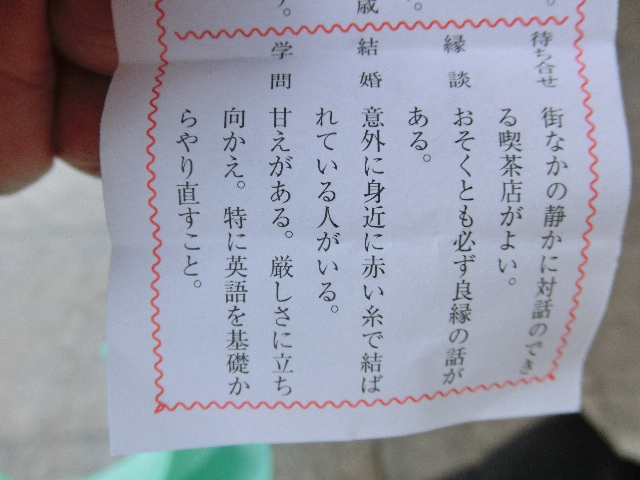 歳
。
。
待ち合せ
街なかの静かに対話のでき
る喫茶店がよい。
縁談
おそくとも必ず良縁の話が
ある。
結婚
意外に身近に赤い糸で結ば
れている人がいる。
学問
甘えがある。厳しさに立ち
向かえ。特に英語を基礎か
らやり直すこと。